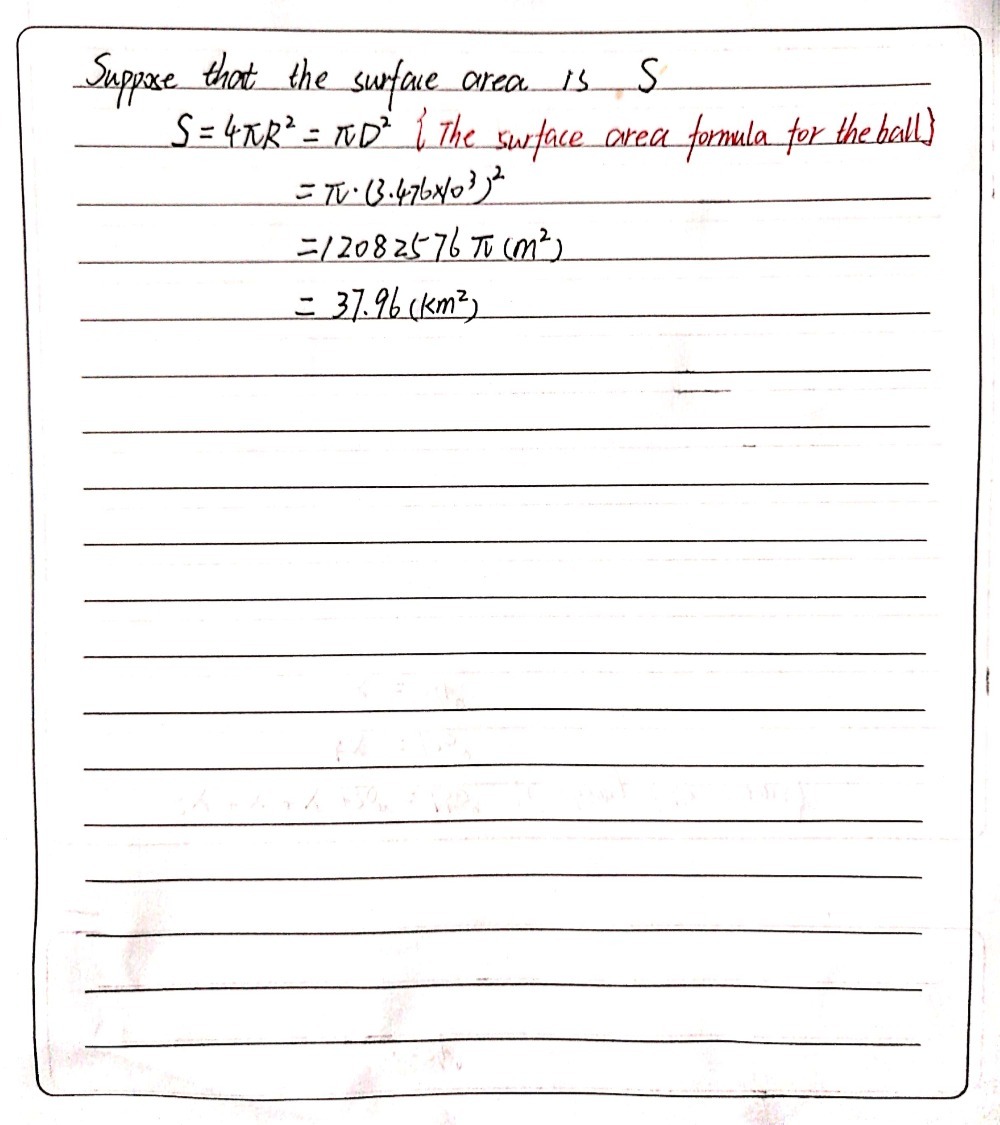 Suppose that the surface area is S
S = 4πR² = πD² { The surface area formula for the ball}
= π·(3.476×10³)²
=12082576 π (m²)
= 37.96 (km²)